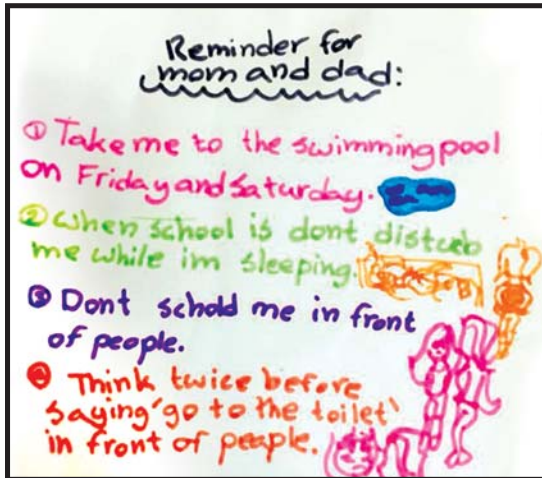 Reminder for
mom and dad:
① Take me to the swimming pool
on Friday and Saturday.
② When school is dont disturb
me while im sleeping.
③ Dont schold me in front
of people.
④ Think twice before
saying 'go to the toilet'
in front of people.